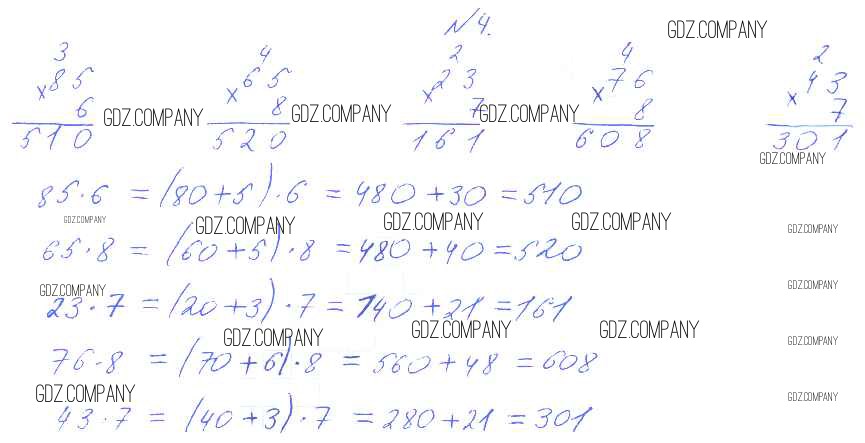 №4.
GDZ.COMPANY
3 4 2 4 2
×85 ×65 ×23 ×76 ×43
6 8 7 8 7
GDZ.COMPANY GDZ.COMPANY GDZ.COMPANY
510 520 161 608 301
GDZ.COMPANY
85·6 = (80+5)·6 = 480+30 = 510
GDZ.COMPANY GDZ.COMPANY GDZ.COMPANY GDZ.COMPANY GDZ.COMPANY
65·8 = (60+5)·8 = 480+40 = 520
GDZ.COMPANY GDZ.COMPANY
23·7 = (20+3)·7 = 140+21 = 161
GDZ.COMPANY GDZ.COMPANY GDZ.COMPANY GDZ.COMPANY
76·8 = (70+6)·8 = 560+48 = 608
GDZ.COMPANY GDZ.COMPANY
43·7 = (40+3)·7 = 280+21 = 301